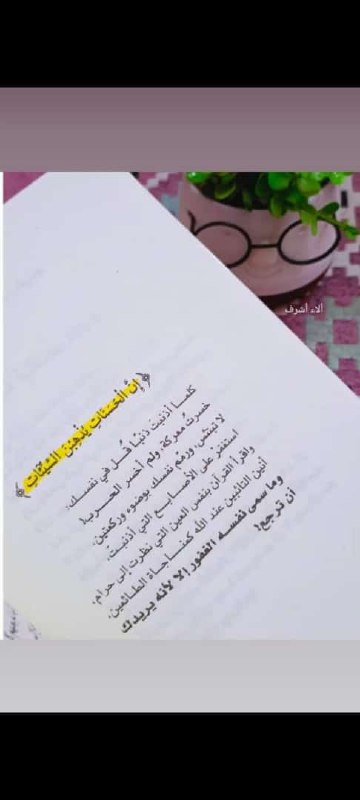 ألاء أشرف
﴿إِنَّ الْحَسَنَاتِ يُذْهِبْنَ السَّيِّئَاتِ﴾
كلما أذنبت ذنبًا قُل في نفسك:
خسرتُ معركة، ولم أخسر الحرب!
لا تبتئس ورمّم نفسك بوضوء وركعتين،
استغفر على الأصابع التي أذنبت،
واقرأ القرآن بنفس العين التي نظرت إلى حرام،
أنين التائبين عند الله كمناجاة الطائعين،
وما سمى نفسه الغفور إلا لأنه يريدك
أن ترجع!